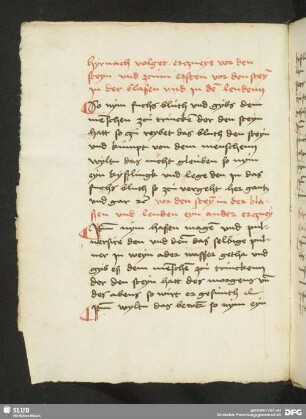 hyrnach volget erczneye vor den
steyn und zcum ersten vor den steyn
in der blasen und in den lenden
So nym fuchs bluth und gybs dem
menschen zcu trincken der den steyn
hatt so czu reybet das bluth den steyn
und kumpt von dem menschen
wyltu das nicht gleuben so nym
eyn kyslingk und lege den in das
fuchs bluth so zcu vergeht her gantz
und gar vor den steyn in der bla-
ssen und lenden eyn ander erczney
Item nym hasen magen und pul-
versire den und das selbige pul-
ver in weyn ader wasser gethan und
gyb es dem menschen zcu trincken
der den steyn hatt des morgens und
des abens so wirt er gesunth
Item wyltu das so nym eyn
SLUB
Wir führen Wissen.
gefördert von der
Deutschen Forschungsgemeinschaft
DFG